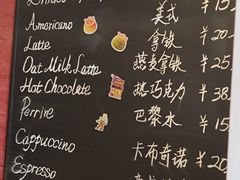 Drinks
Americano 美式 ¥20
Latte 拿铁 ¥20
Oat Milk Latte 燕麦拿铁 ¥25
Hot Chocolate 热巧克力 ¥38
Perrire 巴黎水 ¥15
Cappuccino 卡布奇诺 ¥20
Espresso